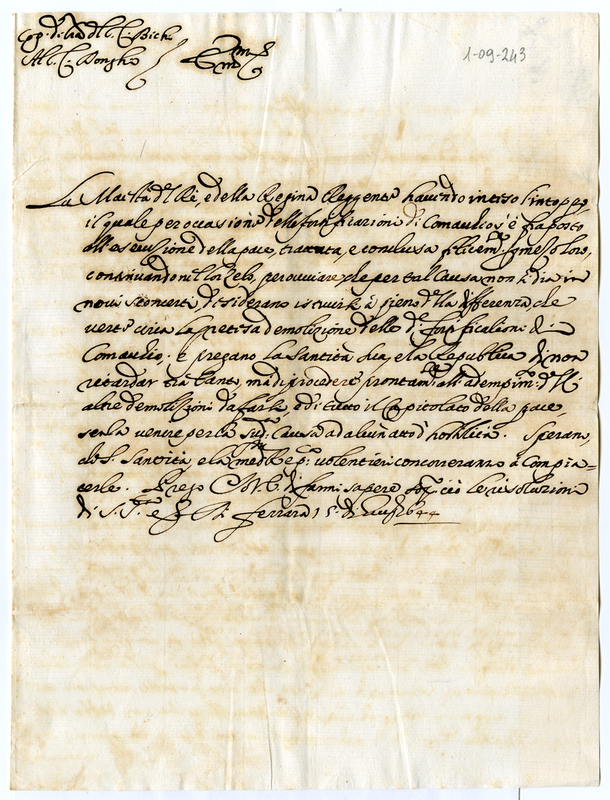 Cop.ª di l'ra del C. Bichi
Al C. Donghi
Em.mo S.
1-09-243
La Maestà del Rè, e della Regina Reggente havendo inteso l'intoppo,
il quale per occasione delle fortificazioni di Comacchio s'è fraposto
all'esecuzione della pace, trattata, e conclusa felicem.te col mezzo loro,
continuando nel lor zelo, per ovviare che per tal causa non si dia in
nuovi sconcerti desiderano istruirsi à pieno della differenza, che
verte circa la pretesa demolizione delle d. fortificationi di
Comacchio, e pregano la Santità Sua, e la Republica di non
ritardar tra tanto, mà di procedere prontam.te all'adempim.to dell'
altre demolizioni da farsi, e di tutto il Capitolato della pace,
senza venire per la sud.ª causa ad alcun atto d'hostilità. Sperano,
che S. Santità, e la med.ª Rep.ª volentieri concorreranno à compia-
cerle. Prego di farmi sapere sop.ª ciò le risoluzioni
di S. S.tà e Ferrara 15 di 1644